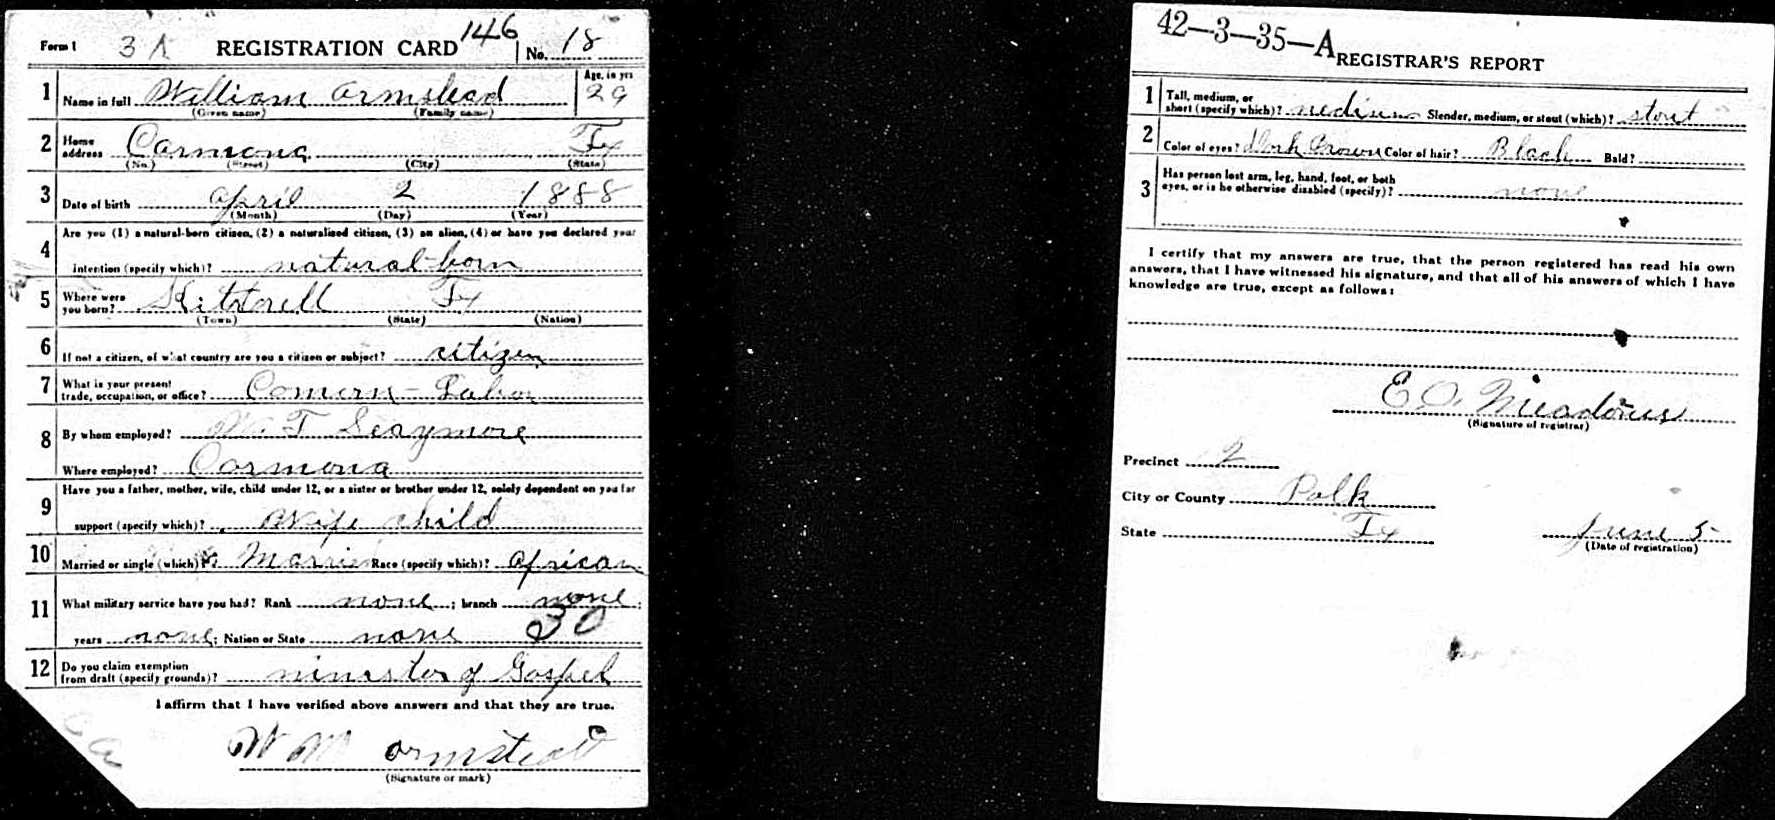 Form 1 3 A REGISTRATION CARD 146 No. 18
1 Name in full William Armstead Age, in yrs 29
(Given name) (Family name)
2 Home address Carmona Tx
(No.) (Street) (City) (State)
3 Date of birth April 2 1888
(Month) (Day) (Year)
4 Are you (1) a natural-born citizen, (2) a naturalized citizen, (3) an alien, (4) or have you declared your
intention (specify which)? natural-born
5 Where were you born? Kittrell Tx
(Town) (State) (Nation)
6 If not a citizen, of what country are you a citizen or subject? citizen
7 What is your present trade, occupation, or office? Comern - Labor
8 By whom employed? W. T Seaymore
Where employed? Carmona
9 Have you a father, mother, wife, child under 12, or a sister or brother under 12, solely dependent on you for
support (specify which)? Wife child
10 Married or single (which)? Married Race (specify which)? African
11 What military service have you had? Rank none ; branch none ;
years none ; Nation or State none 30
12 Do you claim exemption from draft (specify grounds)? minastor of Gospel
I affirm that I have verified above answers and that they are true.
W M Armstead
(Signature or mark)
42-3-35-A REGISTRAR'S REPORT
1 Tall, medium, or short (specify which)? medium Slender, medium, or stout (which)? stout
2 Color of eyes? Dark Brown Color of hair? Black Bald?
3 Has person lost arm, leg, hand, foot, or both
eyes, or is he otherwise disabled (specify)? none
I certify that my answers are true, that the person registered has read his own
answers, that I have witnessed his signature, and that all of his answers of which I have
knowledge are true, except as follows:
E O. Meadows
(Signature of registrar)
Precinct 2
City or County Polk
State Tx June 5
(Date of registration)